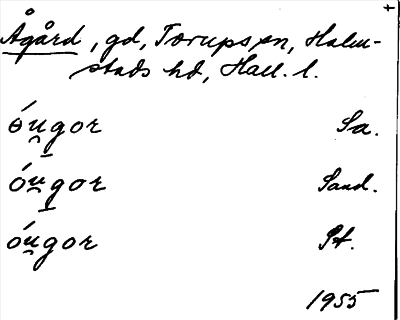 Ågård, gd, Torups sn, Halm-
stads hd, Hall. l.
óu̯gor Sa.
óu̯gor Sand.
óu̯gor St.
1955